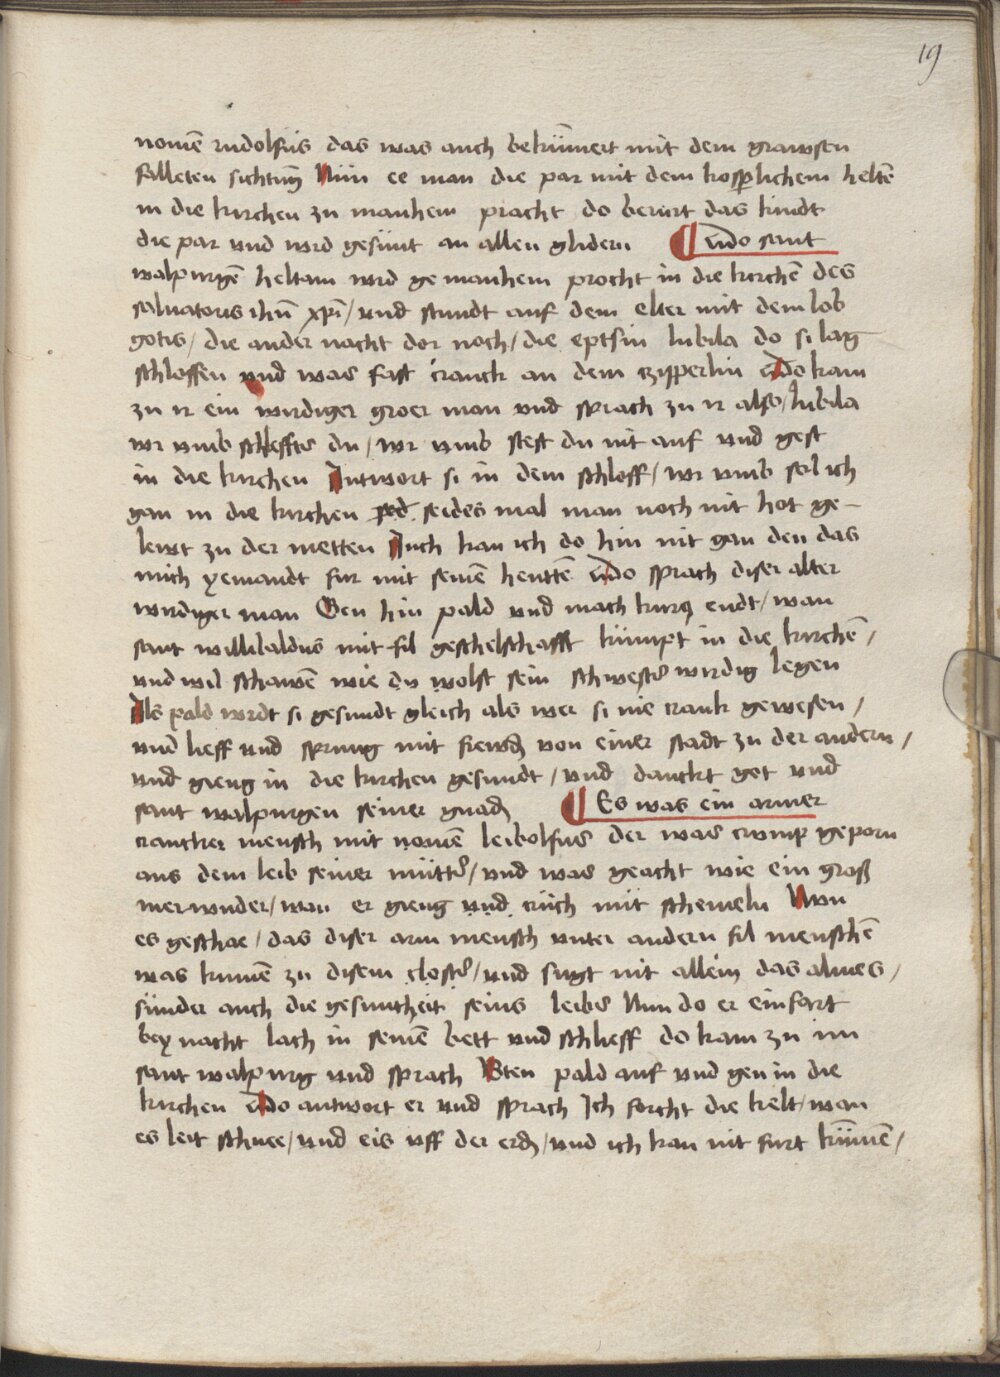 19
nomē rudolfus das was auch bekūmert mit dem grawsen
falleten sichtum̄ Nün ee man die par mit dem kosperlichem heltē
in die kirchen zu manhem pracht do berürt das kindt
die par und wrd gesunt an allen glidern ¶ Do sant
walpurgē heltam wrd ge manhem procht in die kirchē des
saluatoris ihū xpī / und stundt auf dem elter mit dem lob
gotis / die ander nacht dor noch / die eptsin lubila do si lag
schloffen und was fast cranck an dem czipperlin Do kam
zu ir ein wirdiger groer man und sprach zu ir also / lubila
wr umb schleffts du / wr umb stest du nit auf und gest
in die kirchen Antwort si in dem schloff / wr umb sol ich
gan in die kirchen seides mal man noch nit hot ge-
lewt zu der metten Auch kan ich do hin nit gan den das
mich yemandt fur mit seinē hentten Do sprach diser alter
wirdiger man Gen hin pald und mach kurcz endt / wan
sant willibaldus mit fil geschelschafft kümpt in die kirchē /
und wil schawē wie du wolst sein schwester wirdig legen
Als pald wrdt si gesundt gleich als wer si nie crank gewesen /
und lieff und sprung mit frewd von einer stadt zu der andern /
und gieng in die kirchen gesundt / und danckt got und
sant walpurgen seiner gnad ¶ Es was ein armer
crancker mensch mit nomē leibolfus der was crump geporn
aus dem leib seiner mütter / und was geacht wie ein groß
mer wnder / wan er gieng und crüch mit schemeln Nun
es geschae / das diser arm mensch unter andern fil menschē
was kumē zu disem closter / und sugt nit allein das almes /
sünder auch die gesuntheit seins leibs Nun do er ein fart
bey nacht lach in seinē bett und schlieff do kam zu im
sant walpurg und sprach Sten pald auf und gen in die
kirchen Do antwort er und sprach Ich forcht die kelt / wan
es leit schnee / und eis uff der erd / und ich kan nit furt kūmē /